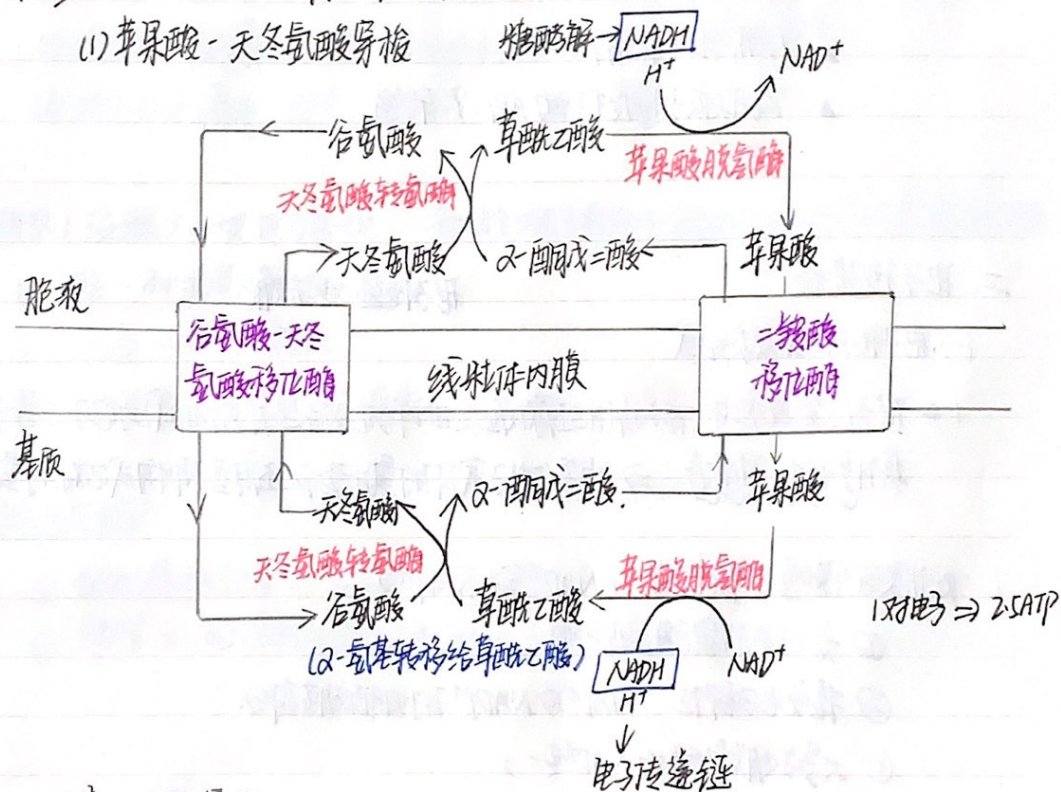 (1) 苹果酸-天冬氨酸穿梭
糖酵解→ NADH
H⁺
NAD⁺
谷氨酸
草酰乙酸
苹果酸脱氢酶
天冬氨酸转氨酶
天冬氨酸
α-酮戊二酸
苹果酸
胞液
谷氨酸-天冬
氨酸移位酶
线粒体内膜
二羧酸
移位酶
基质
天冬氨酸
α-酮戊二酸
苹果酸
天冬氨酸转氨酶
苹果酸脱氢酶
谷氨酸
草酰乙酸
1对电子⇒2.5ATP
(α-氨基转移给草酰乙酸)
NADH
H⁺
NAD⁺
电子传递链